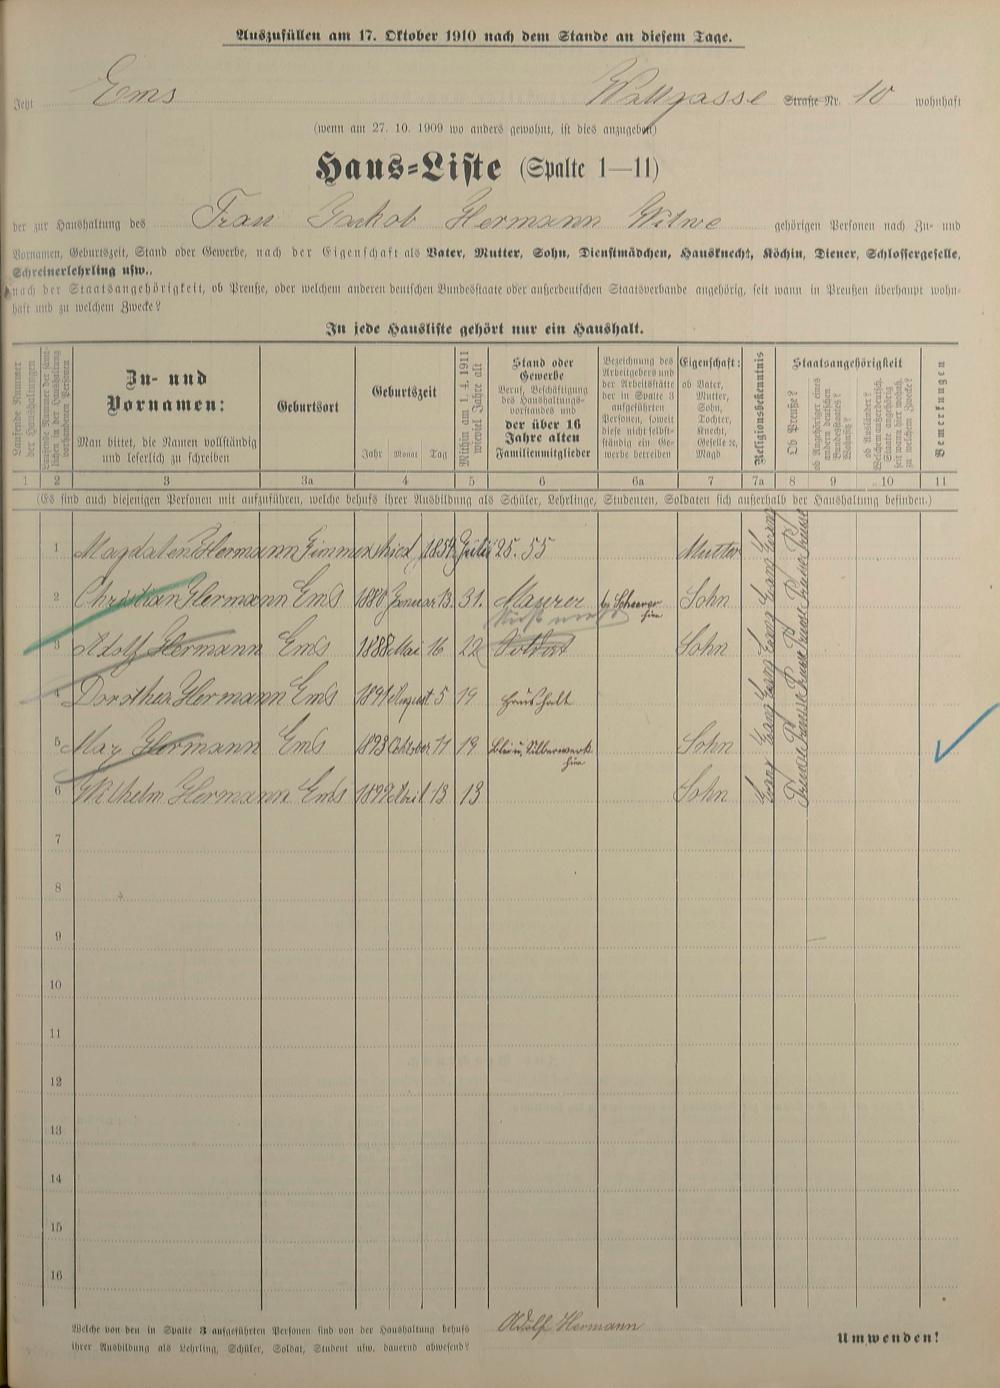 Auszufüllen am 17. Oktober 1910 nach dem Stande an diesem Tage.
Jetzt Ems Wallgasse Straße Nr. 10 wohnhaft
(wenn am 27. 10. 1909 wo anders gewohnt, ist dies anzugeben)
Haus-Liste (Spalte 1—11)
der zur Haushaltung des Frau Jakob Hermann Witwe gehörigen Personen nach Zu- und
Vornamen, Geburtszeit, Stand oder Gewerbe, nach der Eigenschaft als Vater, Mutter, Sohn, Dienstmädchen, Hausknecht, Köchin, Diener, Schlossergeselle,
Schreinerlehrling usw.,
nach der Staatsangehörigkeit, ob Preuße, oder welchem anderen deutschen Bundesstaate oder außerdeutschen Staatsverbande angehörig, seit wann in Preußen überhaupt wohn-
haft und zu welchem Zwecke?
In jede Hausliste gehört nur ein Haushalt.
Laufende Nummer der Haushaltungen
Laufende Nummer der sämt-
lichen in der Haushaltung
vorhandenen Personen
Zu- und
Vornamen:
Man bittet, die Namen vollständig
und leserlich zu schreiben
Geburtsort
Geburtszeit
Jahr Monat Tag
Mithin am 1. 4. 1911
wieviel Jahre alt
Stand oder
Gewerbe
Beruf, Beschäftigung
des Haushaltungs-
vorstandes und
der über 16
Jahre alten
Familienmitglieder
Bezeichnung des
Arbeitgebers und
der Arbeitsstätte
der in Spalte 3
aufgeführten
Personen, soweit
diese nicht selbst-
ständig ein Ge-
werbe betreiben
Eigenschaft:
ob Vater,
Mutter,
Sohn,
Tochter,
Knecht,
Geselle ꝛc,
Magd
Religionsbekenntnis
Staatsangehörigkeit
Ob Preuße?
ob Angehöriger eines
andern deutschen
Bundesstaates?
ob Ausländer?
Welchem außerdeutsch.
Staate angehörig
seit wann hier wohnh.
zu welchem Zwecke?
Bemerkungen
1 2 3 3a 4 5 6 6a 7 7a 8 9 10 11
(Es sind auch diejenigen Personen mit aufzuführen, welche behufs ihrer Ausbildung als Schüler, Lehrlinge, Studenten, Soldaten sich außerhalb der Haushaltung befinden.)
1 Hermann Juli 25. 55 Mutter
2 Christian Hermann Ems 1880 Januar 13. 31. Maurer Sohn
3 Adolf Hermann Ems 1888 Mai 16 22 Soldat Sohn
4 Dorothea Hermann Ems 1891 August 5 19 Haushalt
5 Max Hermann Ems Oktober 11 19 Sohn
6 Wilhelm Hermann Ems April 13 13 Sohn
7
8
9
10
11
12
13
14
15
16
Welche von den in Spalte 3 aufgeführten Personen sind von der Haushaltung behufs Adolf Hermann
ihrer Ausbildung als Lehrling, Schüler, Soldat, Student usw. dauernd abwesend?
Umwenden!